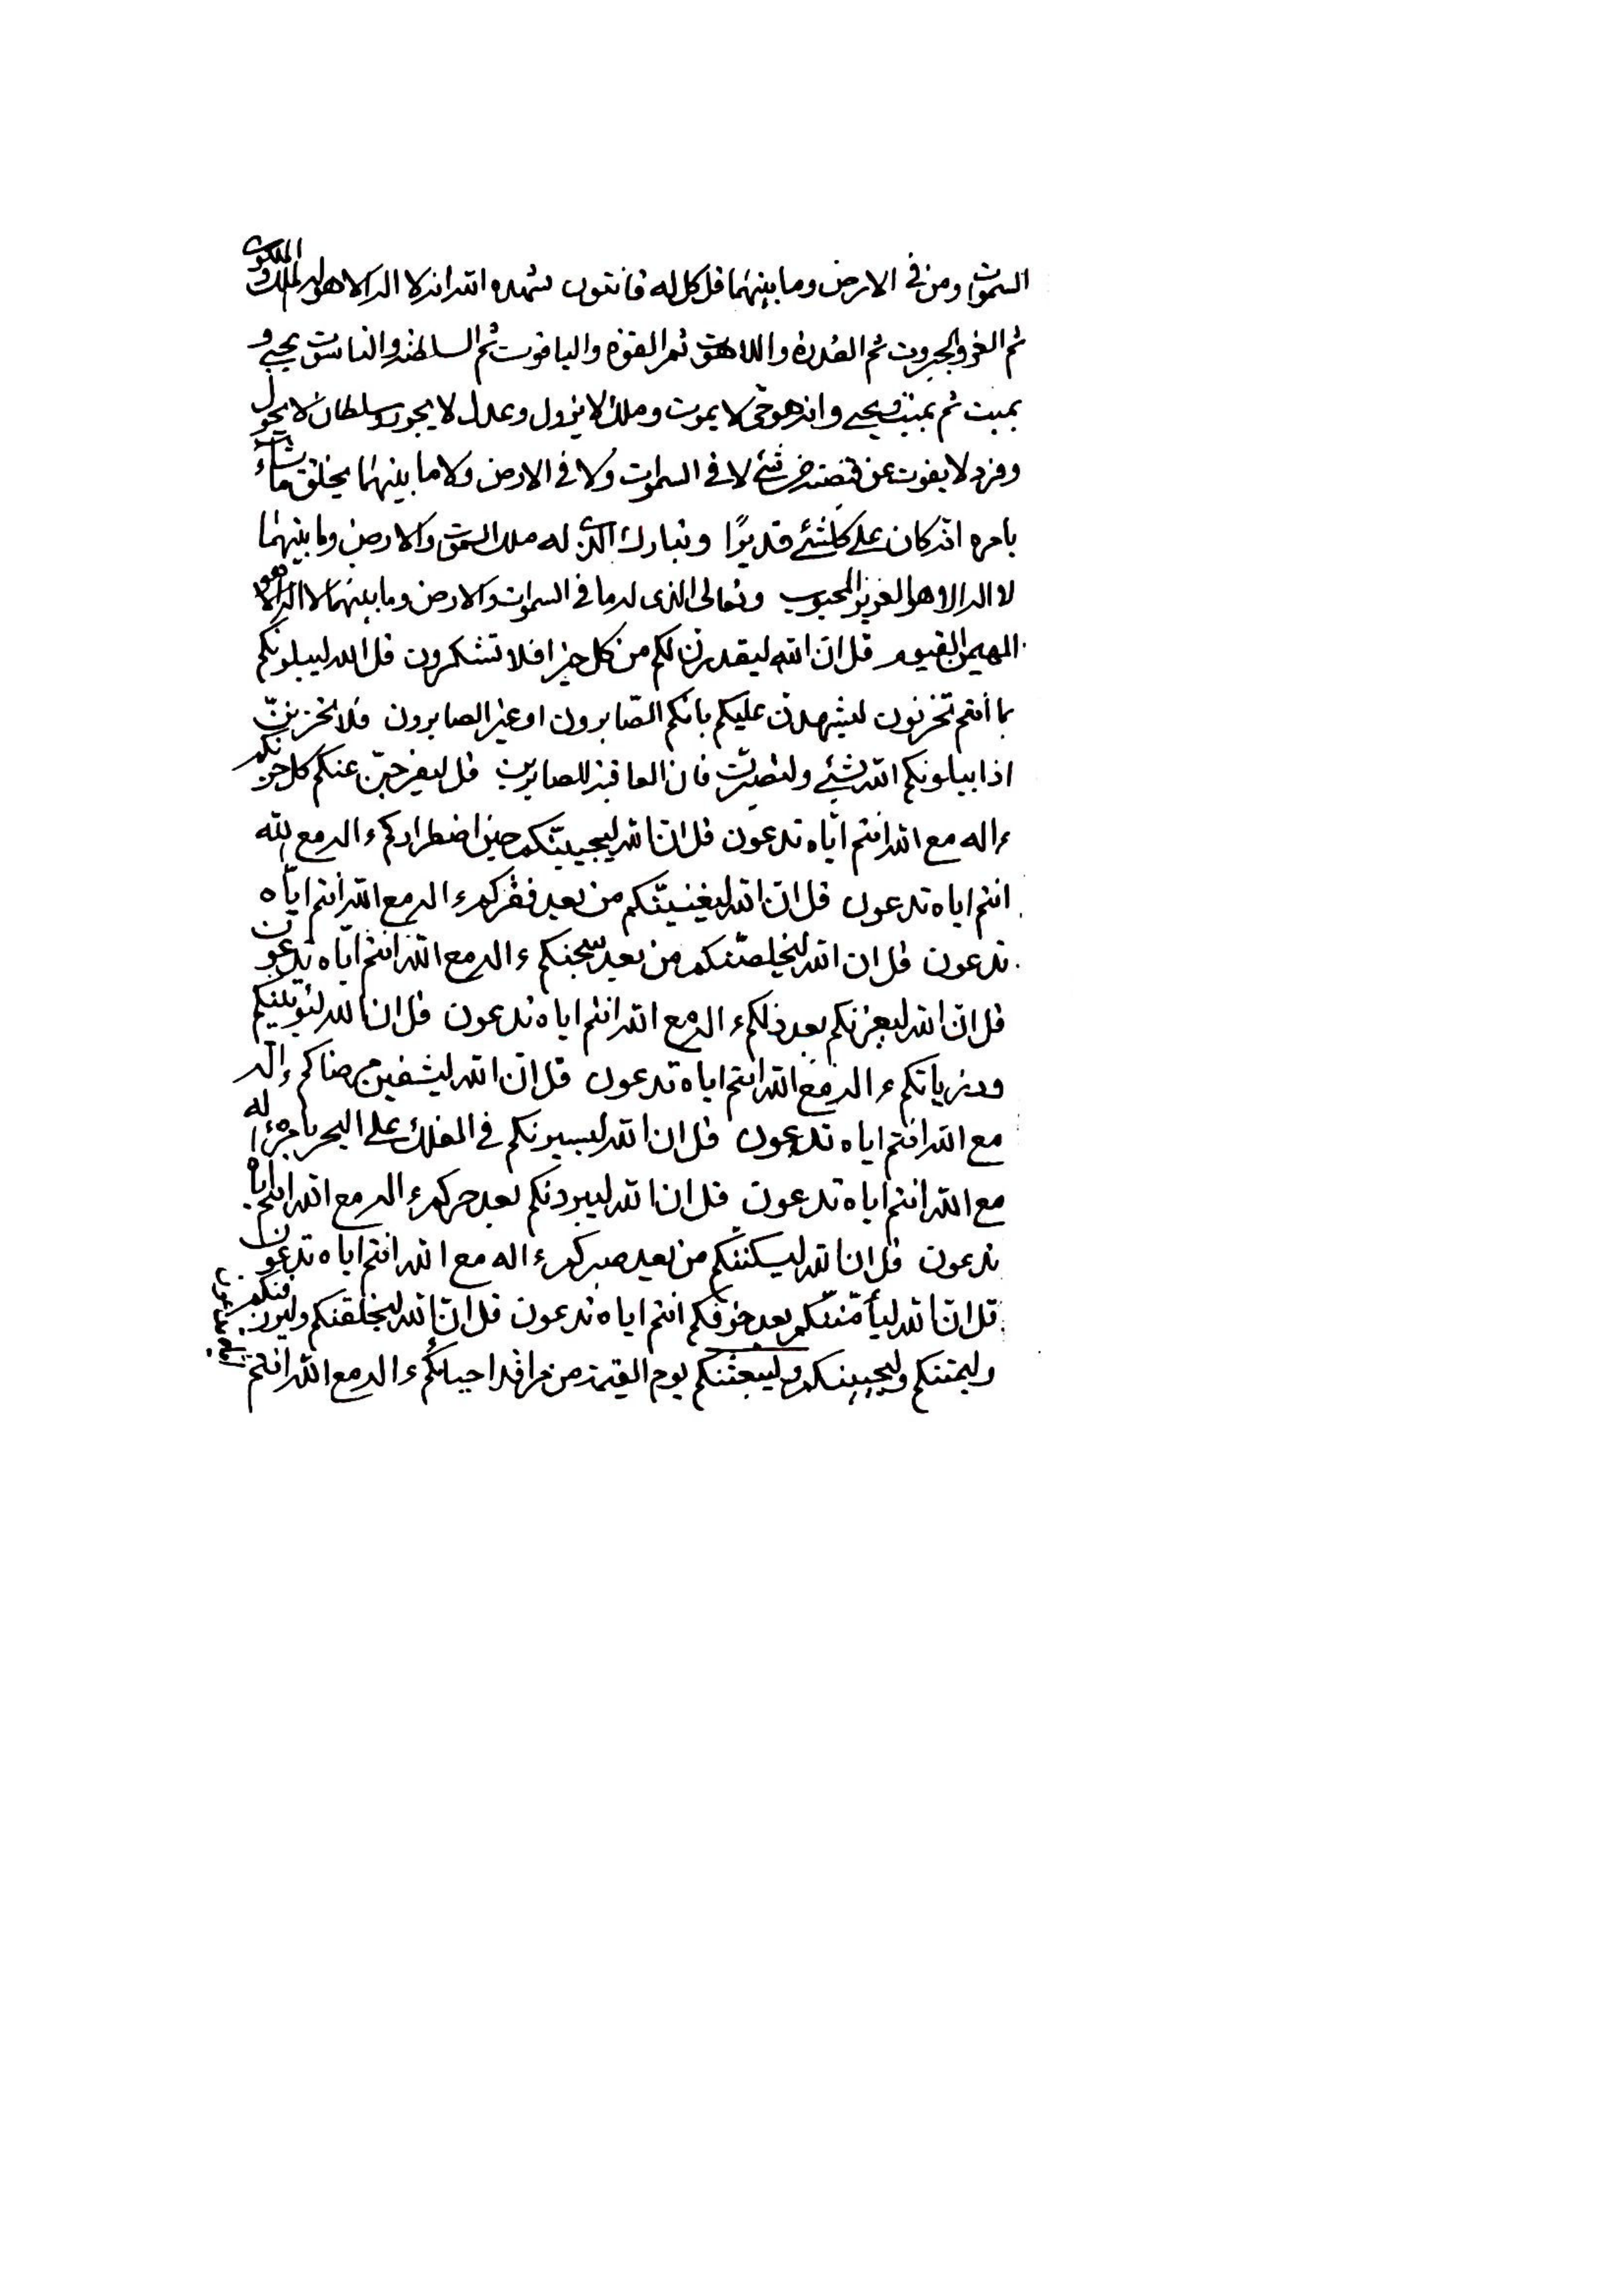 السموات ومن في الارض وما بينهما قل كل له قانتون شهد الله انه لا اله الا هو له الملك والملكوت
ثم العز والجبروت ثم القدرة واللاهوت ثم القوة والياقوت ثم السلطنة والناسوت يحيي و
يميت ثم يميت ويحيي وانه هو حي لا يموت وملك لا يزول وعدل لا يجور وسلطان لا يحول
وفرد لا يفوت عن قبضته من شئ لا في السموات ولا في الارض ولا ما بينهما يخلق ما يشاء
بامره انه كان على كلشئ قديرًا وتبارك الذي له ملك السموات والارض وما بينهما
لا اله الا هو العزيز المحبوب وتعالى الذي له ما في السموات والارض وما بينهما لا اله الا هو
المهيمن القيوم قل ان الله ليقدرن لكم من كل خير افلا تشكرون قل الله ليبلونكم
بما أنتم تحزنون ليشهدن عليكم بانكم الصّابرون او غير الصابرون فلا تحزننّ
اذا يبلونكم الله بشئ ولتصبرنّ فان العاقبة للصابرين قل ليفرجنّ عنكم كل حزنكم
ءاله مع الله انتم ايّاه تدعون قل انّ الله ليجيبنّكم حين اضطراركم ءاله مع الله
انتم اياه تدعون قل انّ الله ليغنينّكم من بعد فقركم ءاله مع الله انتم ايّاه
تدعون قل ان الله ليخلصنّكم من بعد سجنكم ءاله مع الله انتم ايّاه تدعون
قل انّ الله ليعزنكم بعد ذلكم ءاله مع الله انتم اياه تدعون قل ان الله
وذرياتكم ءاله مع الله انتم اياه تدعون قل انّ الله ليشفين مرضاكم ءاله
مع الله انتم اياه تدعون قل ان الله ليسيرنكم في الفلك على البحر بامره ءاله
مع الله انتم اياه تدعون قل ان الله ليبردنكم بعد حركم ءاله مع الله انتم اياه
تدعون قل ان الله ليسكننّكم من بعد صبركم ءاله مع الله انتم اياه تدعون
قل انّ الله ليأمّننّكم بعد خوفكم انتم اياه تدعون قل انّ الله ليخلقنكم وليرزقنكم
وليمتنكم وليحيينكم وليبعثنكم يوم القيمة من احيائكم ءاله مع الله انتم